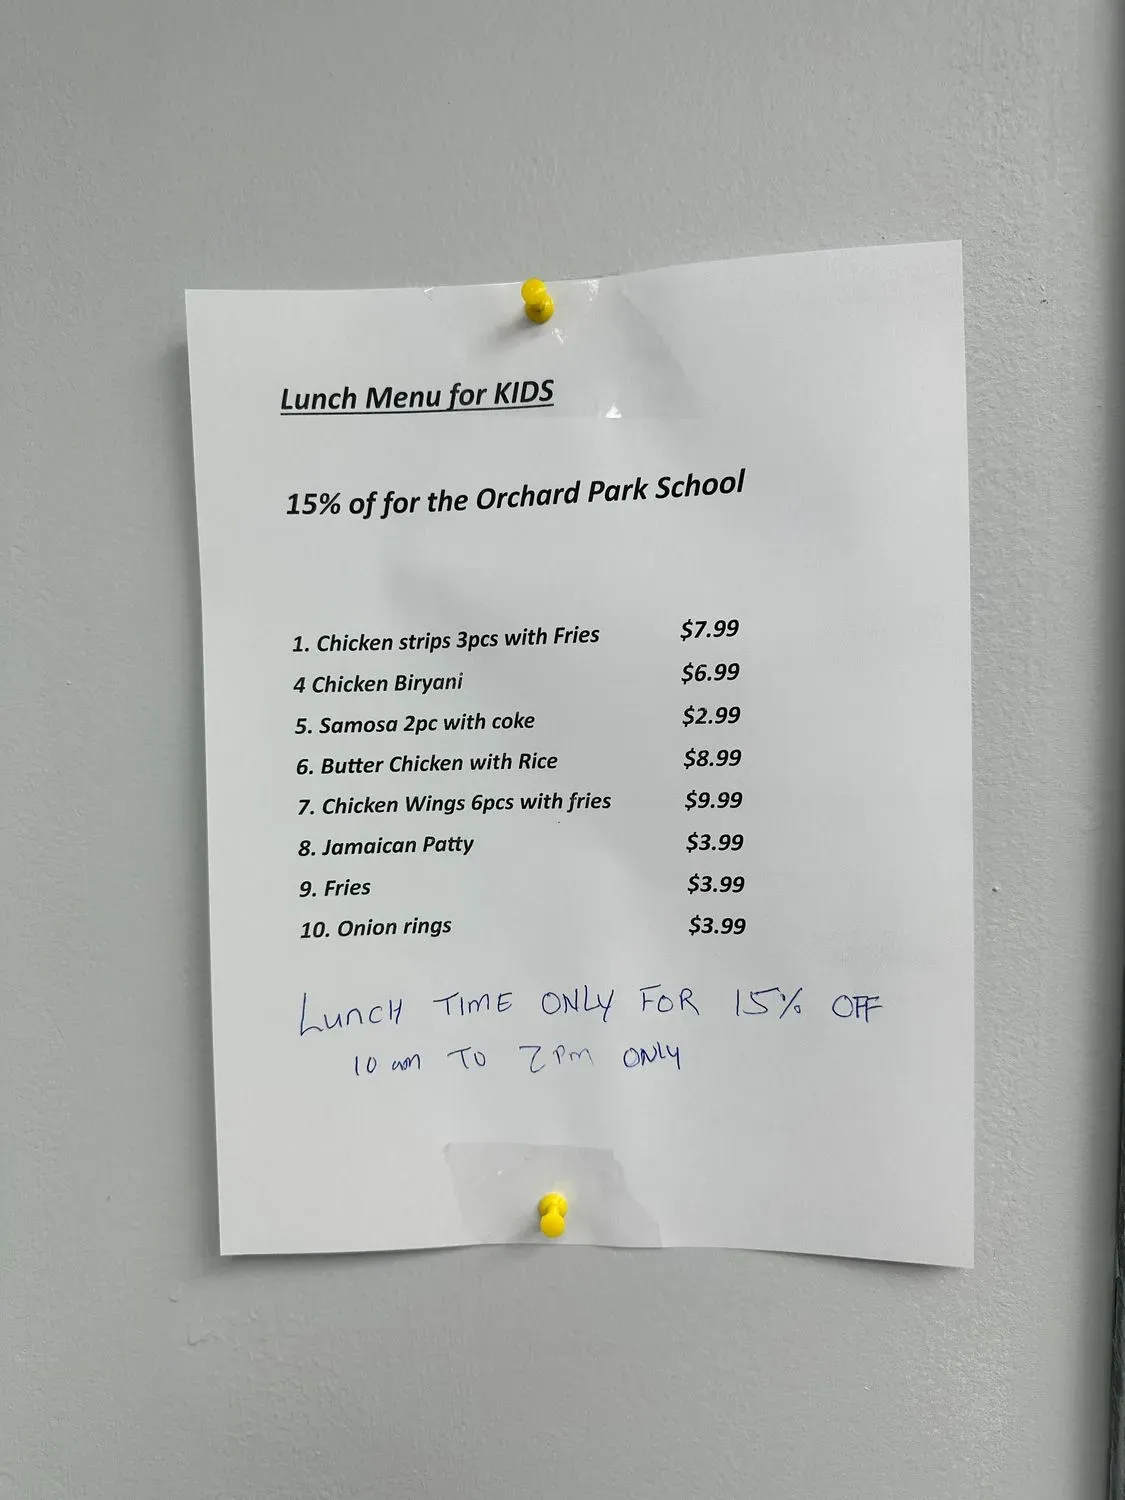 Lunch Menu for KIDS
15% of for the Orchard Park School
1. Chicken strips 3pcs with Fries $7.99
4 Chicken Biryani $6.99
5. Samosa 2pc with coke $2.99
6. Butter Chicken with Rice $8.99
7. Chicken Wings 6pcs with fries $9.99
8. Jamaican Patty $3.99
9. Fries $3.99
10. Onion rings $3.99
LUNCH TIME ONLY FOR 15% OFF
10 am TO 2 Pm ONLY